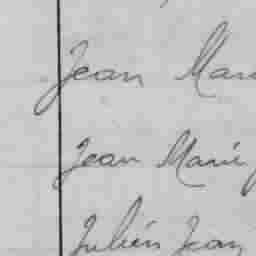 Jean Mari
Jean Marie
Julien Jean